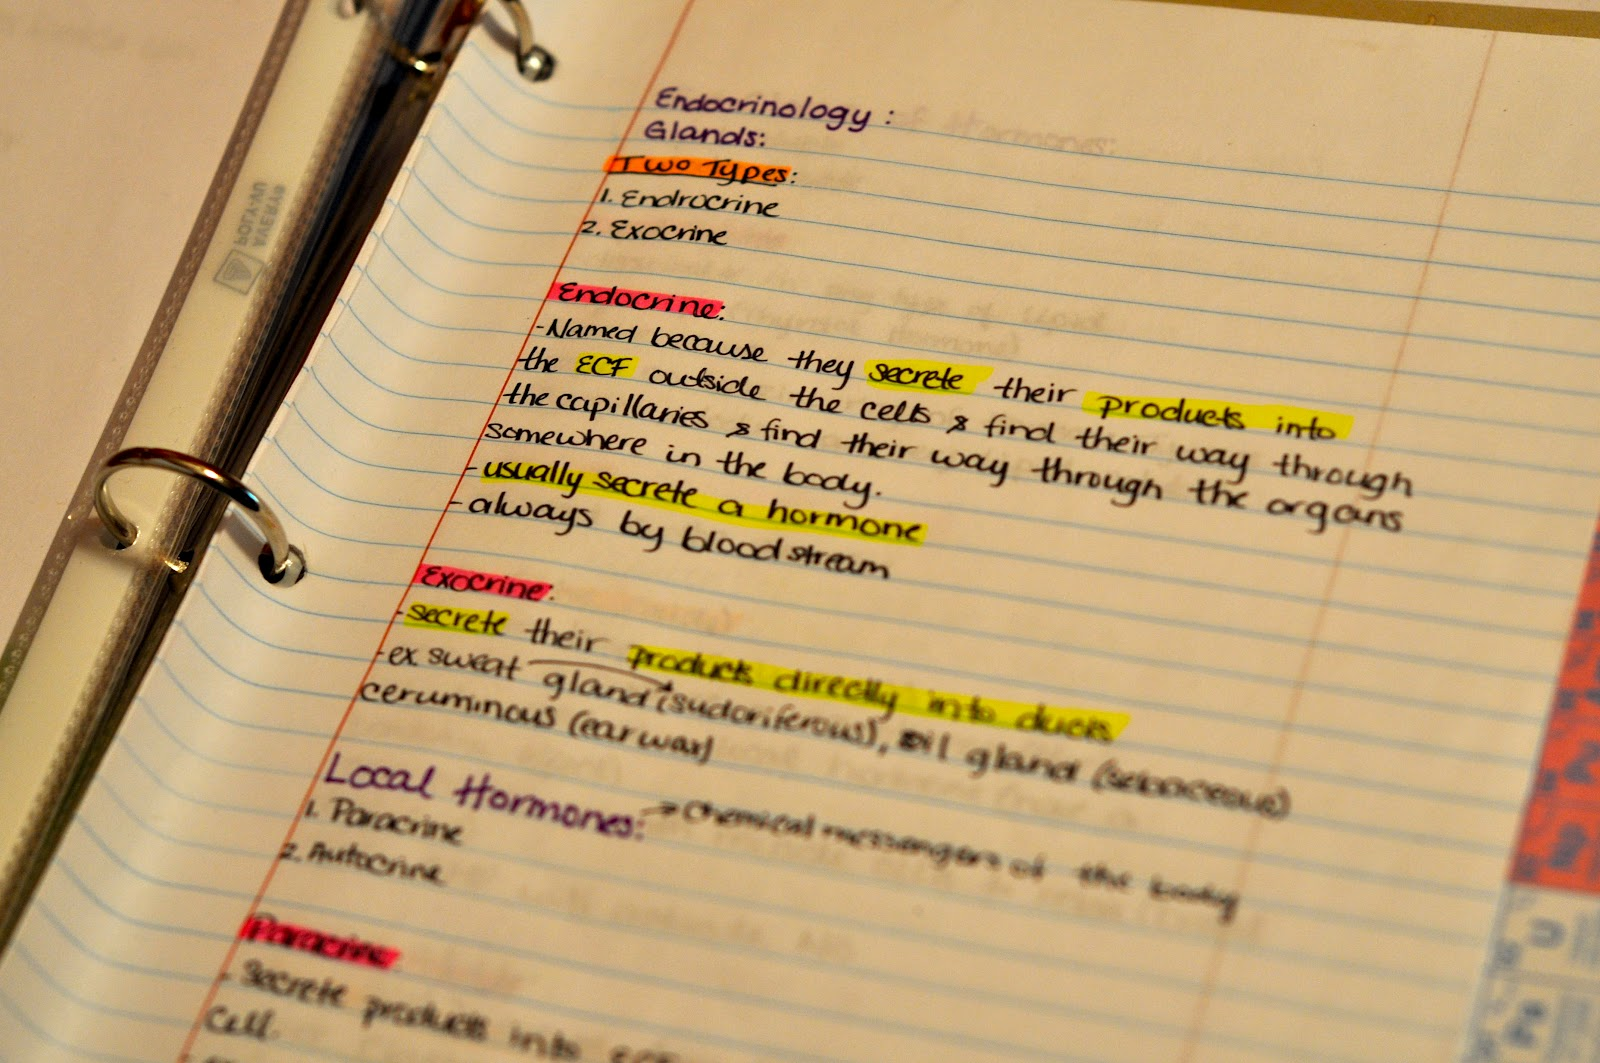 Endocrinology :
Glands:
Two Types:
1. Endrocrine
2. Exocrine
Endocrine:
-Named because they secrete their products into
the ECF outside the cells & find their way through
the capillaries & find their way through the organs
somewhere in the body.
-usually secrete a hormone
-always by bloodstream
Exocrine:
-secrete their products directly into ducts
-ex. sweat gland (sudoriferous), oil gland (sebaceous)
ceruminous (ear wax)
Local Hormones: → Chemical messengers of the body
1. Paracrine
2. Autocrine
Paracrine:
- Secrete products into ECF
Cell.
AVERY
POLY-VU